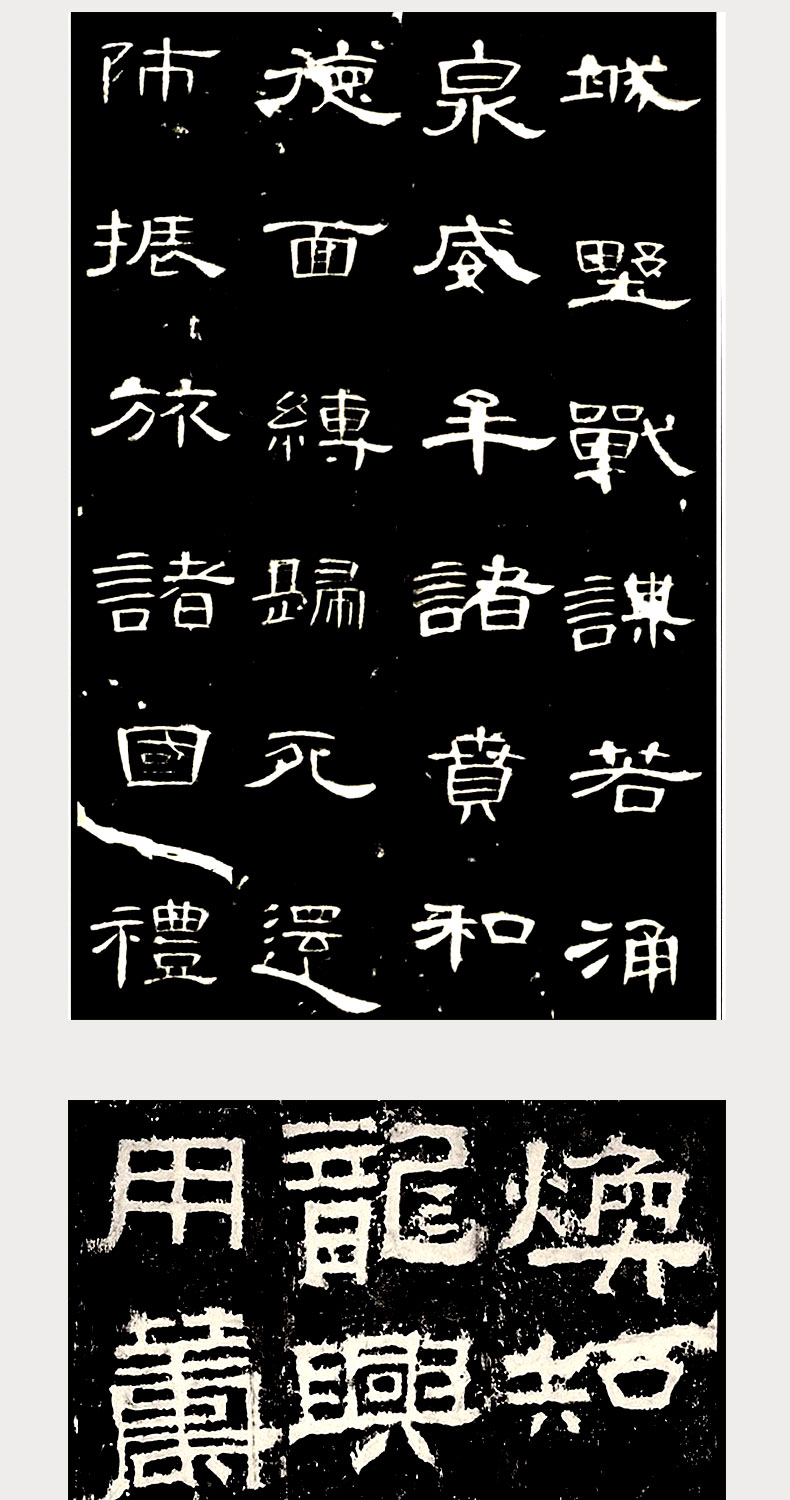 城野戰謀若涌
泉威牟諸賁和
德面縛歸死還
師振旅諸國禮
煥知
龍興
用